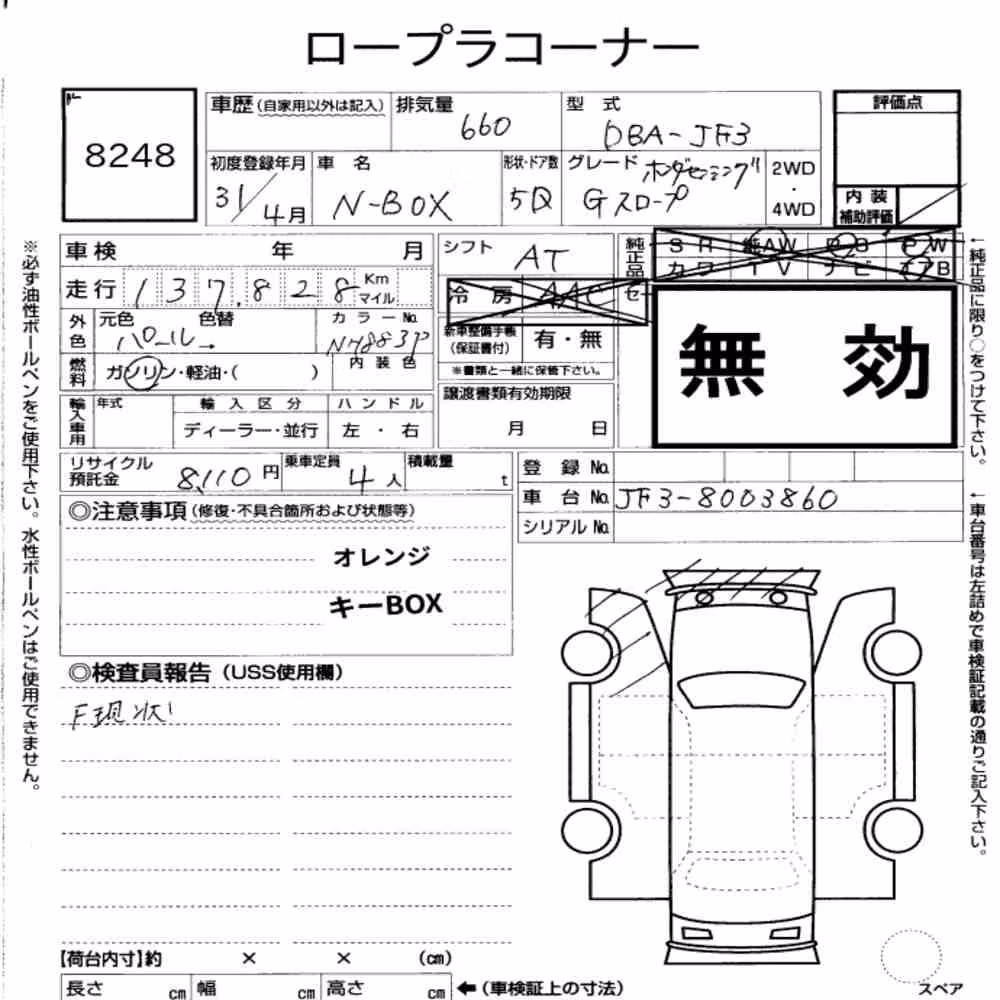 ロープラコーナー
8248
車歴(自家用以外は記入)
排気量
660
型 式
DBA-JF3
評価点
初度登録年月
31/4月
車 名
N-BOX
形状・ドア数
5D
グレード ホンダセンシング
Gスロープ
2WD
・
4WD
内 装
補助評価
車検 年 月
シフト
AT
純正品
S R 純AW P S P W
カワ T V ナビ エアB
走行 137,828 Km
マイル
冷 房 AAC
セー
外色
元色 色替
パール
カラーNo.
NH883P
新車整備手帳
(保証書付)
有・無
※書類と一緒に保管下さい。
無 効
燃料
ガソリン・軽油・( )
内 装 色
輸入車用
年式
輸 入 区 分
ハ ン ド ル
ディーラー・並行
左 ・ 右
譲渡書類有効期限
月 日
リサイクル
預託金
8,110 円
乗車定員
4 人
積載量
t
登 録 No.
車 台 No. JF3-8003860
シリアル No.
◎注意事項(修復・不具合箇所および状態等)
オレンジ
キーBOX
◎検査員報告(USS使用欄)
F現状
【荷台内寸】約 × × (cm)
長さ cm 幅 cm 高さ cm ←(車検証上の寸法)
スペア
※必ず油性ボールペンをご使用下さい。水性ボールペンはご使用できません。
←純正品に限り○をつけて下さい。
←車台番号は左詰めで車検証記載の通りご記入下さい。